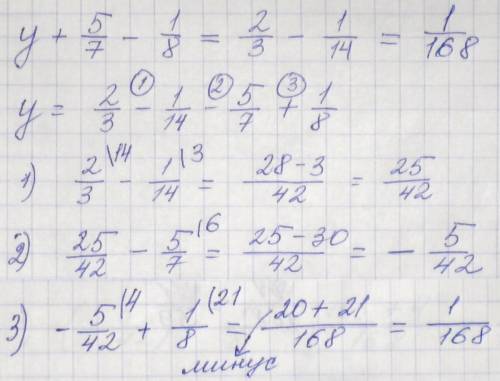 y + 5/7 - 1/8 = 2/3 - 1/14 = 1/168
y = 2/3 -① 1/14 -② 5/7 +③ 1/8
1) 2/3 \14 - 1/14 \3 = 28-3/42 = 25/42
2) 25/42 - 5/7 \6 = 25-30/42 = - 5/42
3) - 5/42 \4 + 1/8 \21 = 20+21/168 = 1/168
минус